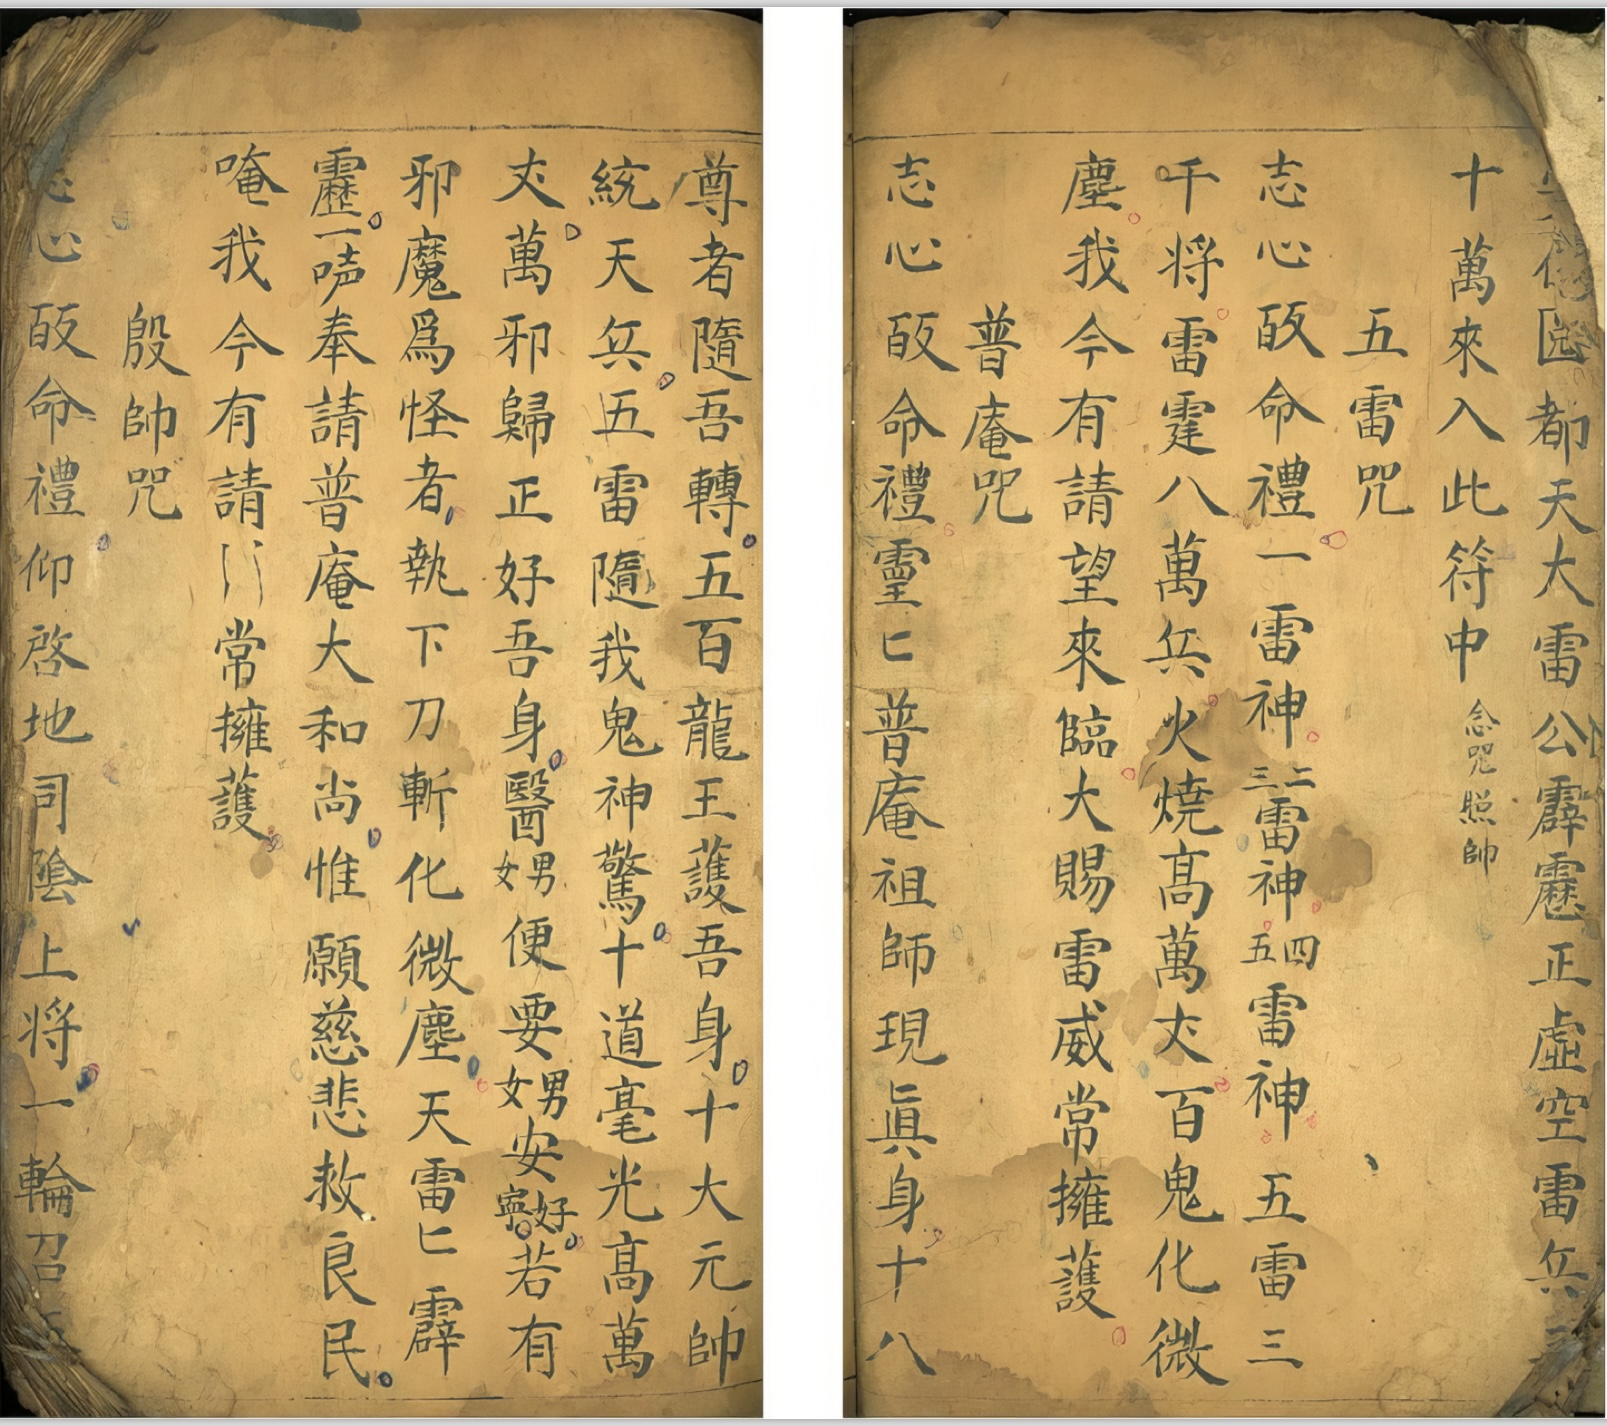 都天大雷公霹靂正虛空雷兵
十萬來入此符中 念咒照帥
五雷咒
志心皈命禮一雷神二三雷神四五雷神五雷三
千将雷霆八萬兵火燒高萬丈百鬼化微
塵我今有請望來臨大賜雷威常擁護
普庵咒
志心皈命禮靈匕普庵祖師現真身十八
尊者隨吾轉五百龍王護吾身十大元帥
統天兵五雷隨我鬼神驚十道毫光高萬
丈萬邪歸正好吾身醫男女便要男女安好寧若有
邪魔爲怪者執下刀斬化微塵天雷匕霹
靂一声奉請普庵大和尚惟願慈悲救良民
唵我今有請〢常擁護
殷帥咒
心皈命禮仰啓地司陰上将一輪召